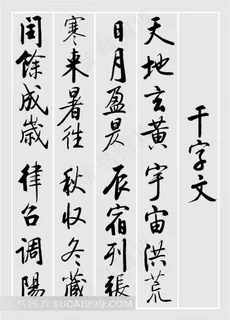 千字文
天地玄黃宇宙洪荒
日月盈昃辰宿列張
寒來暑往秋收冬藏
閏餘成歲律呂調陽
SUCAI999.COM